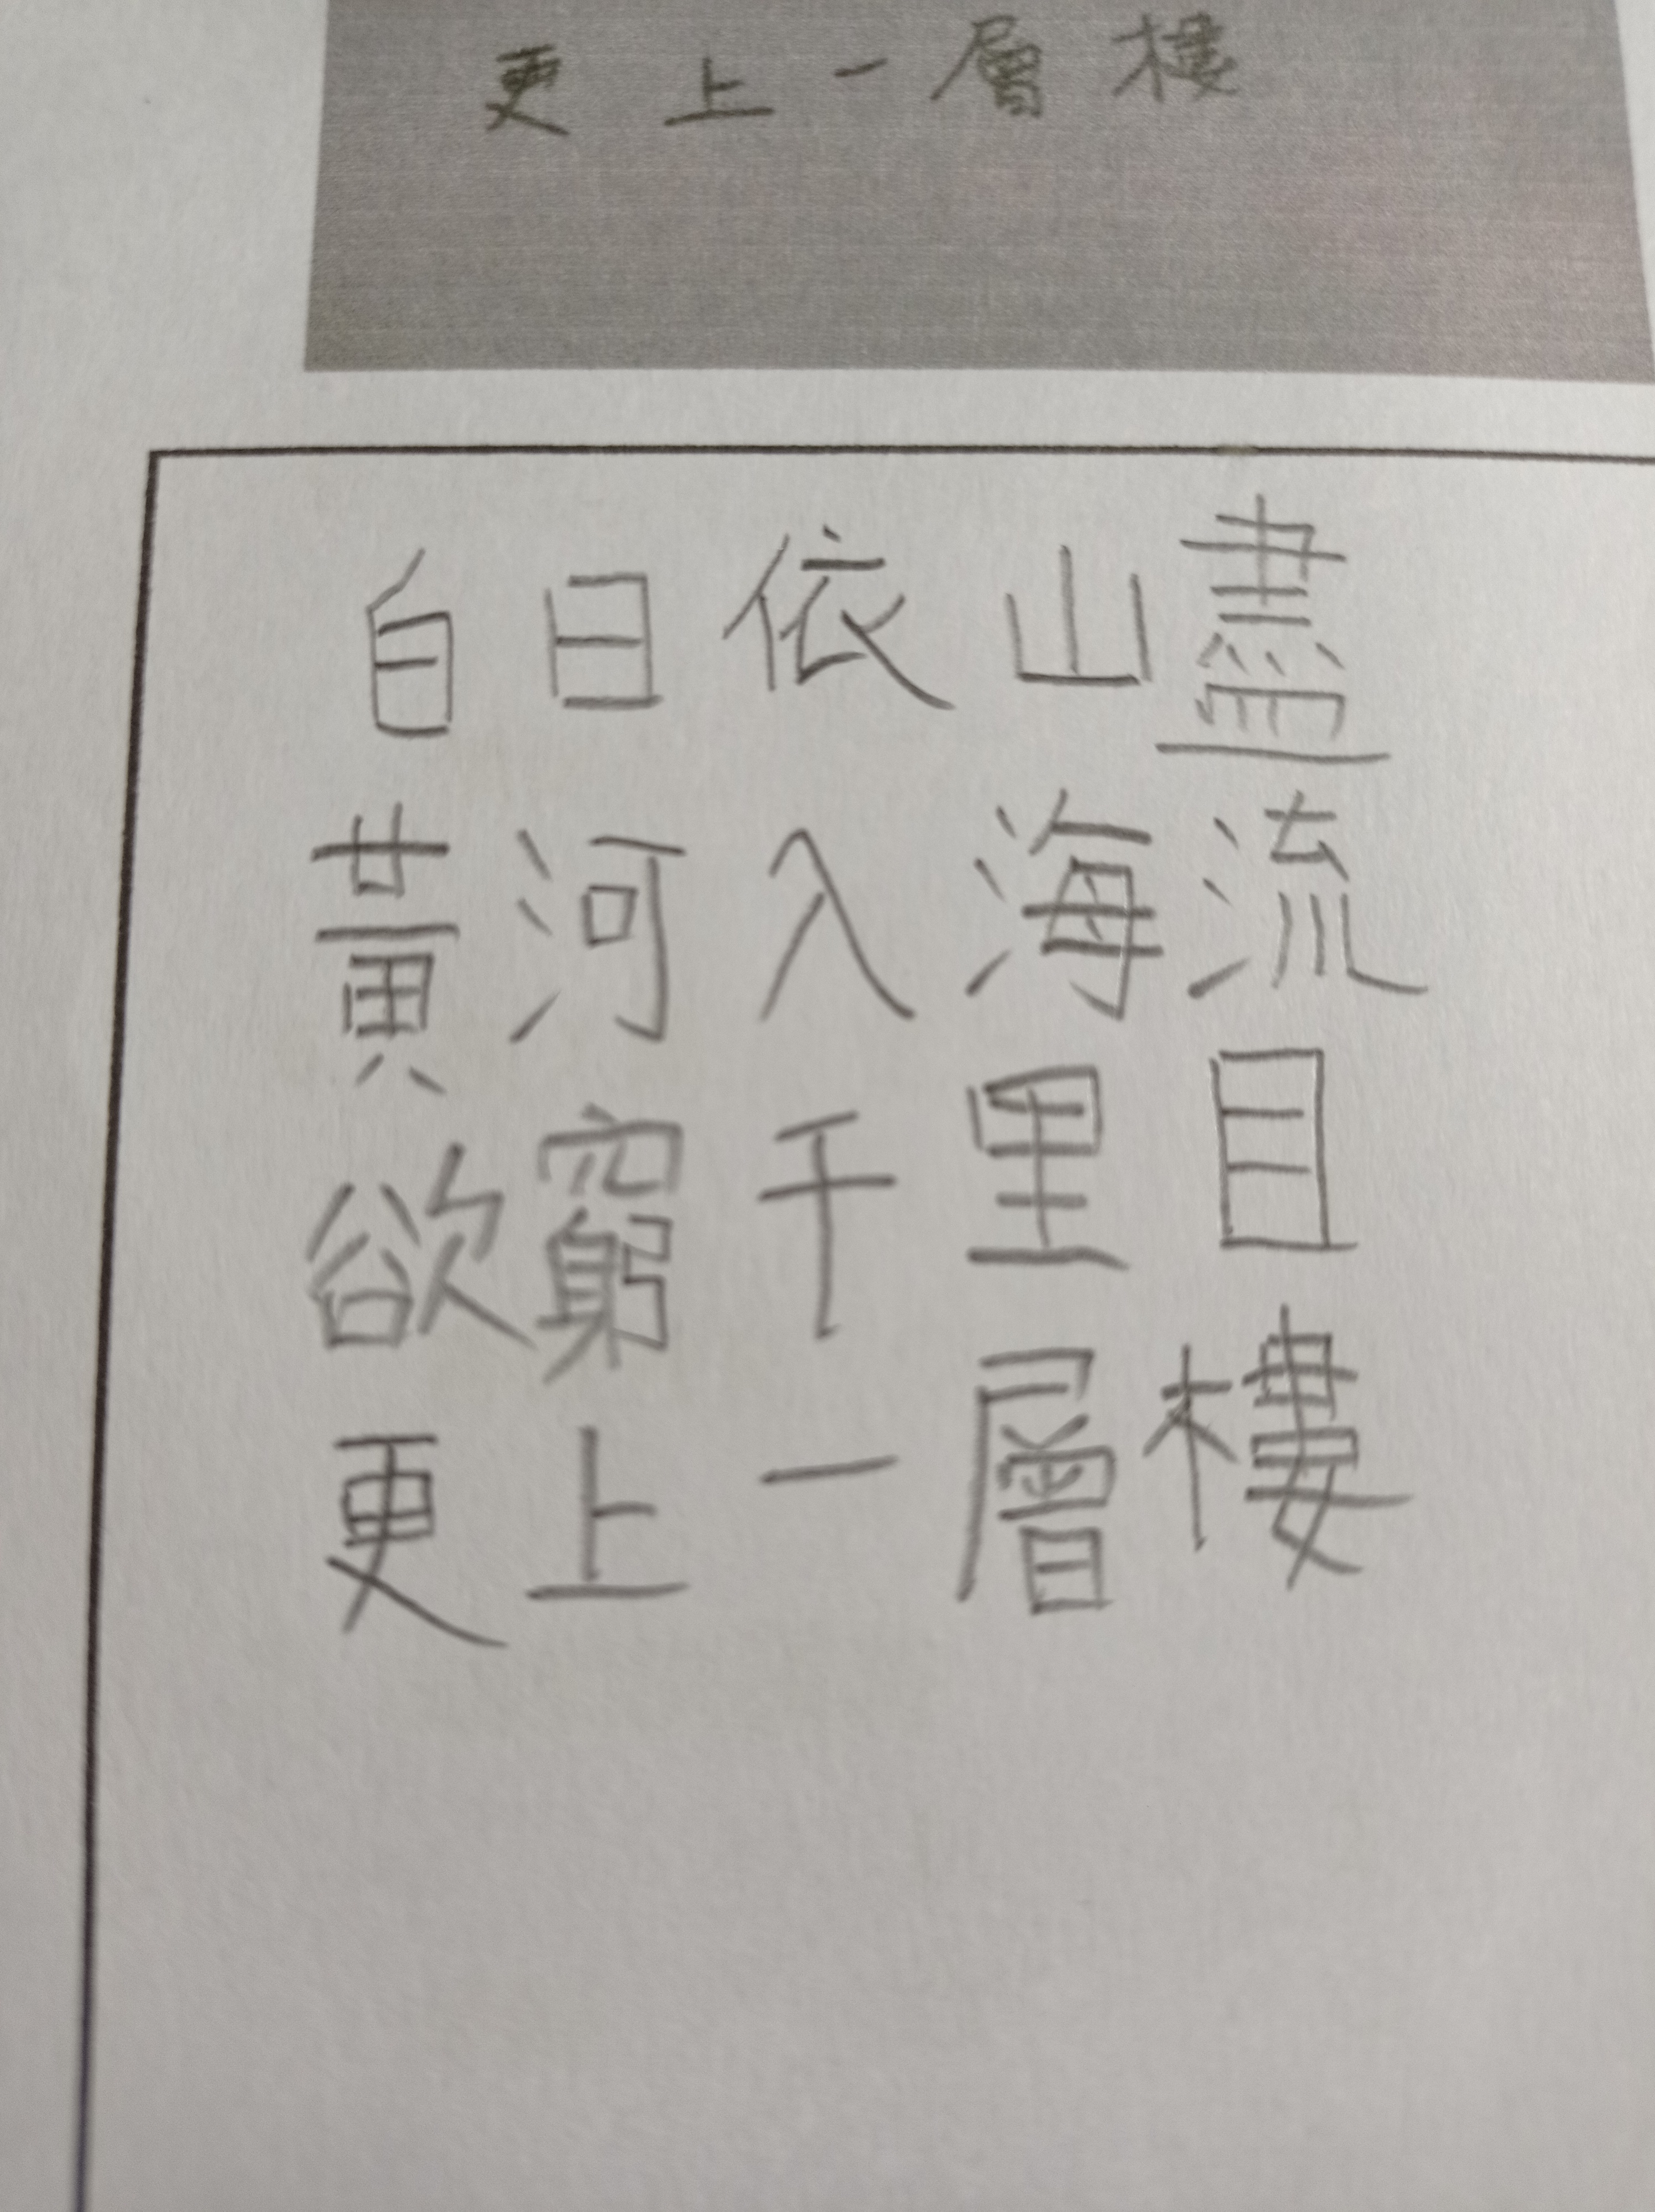 更上一層樓
白日依山盡
黃河入海流
欲窮千里目
更上一層樓